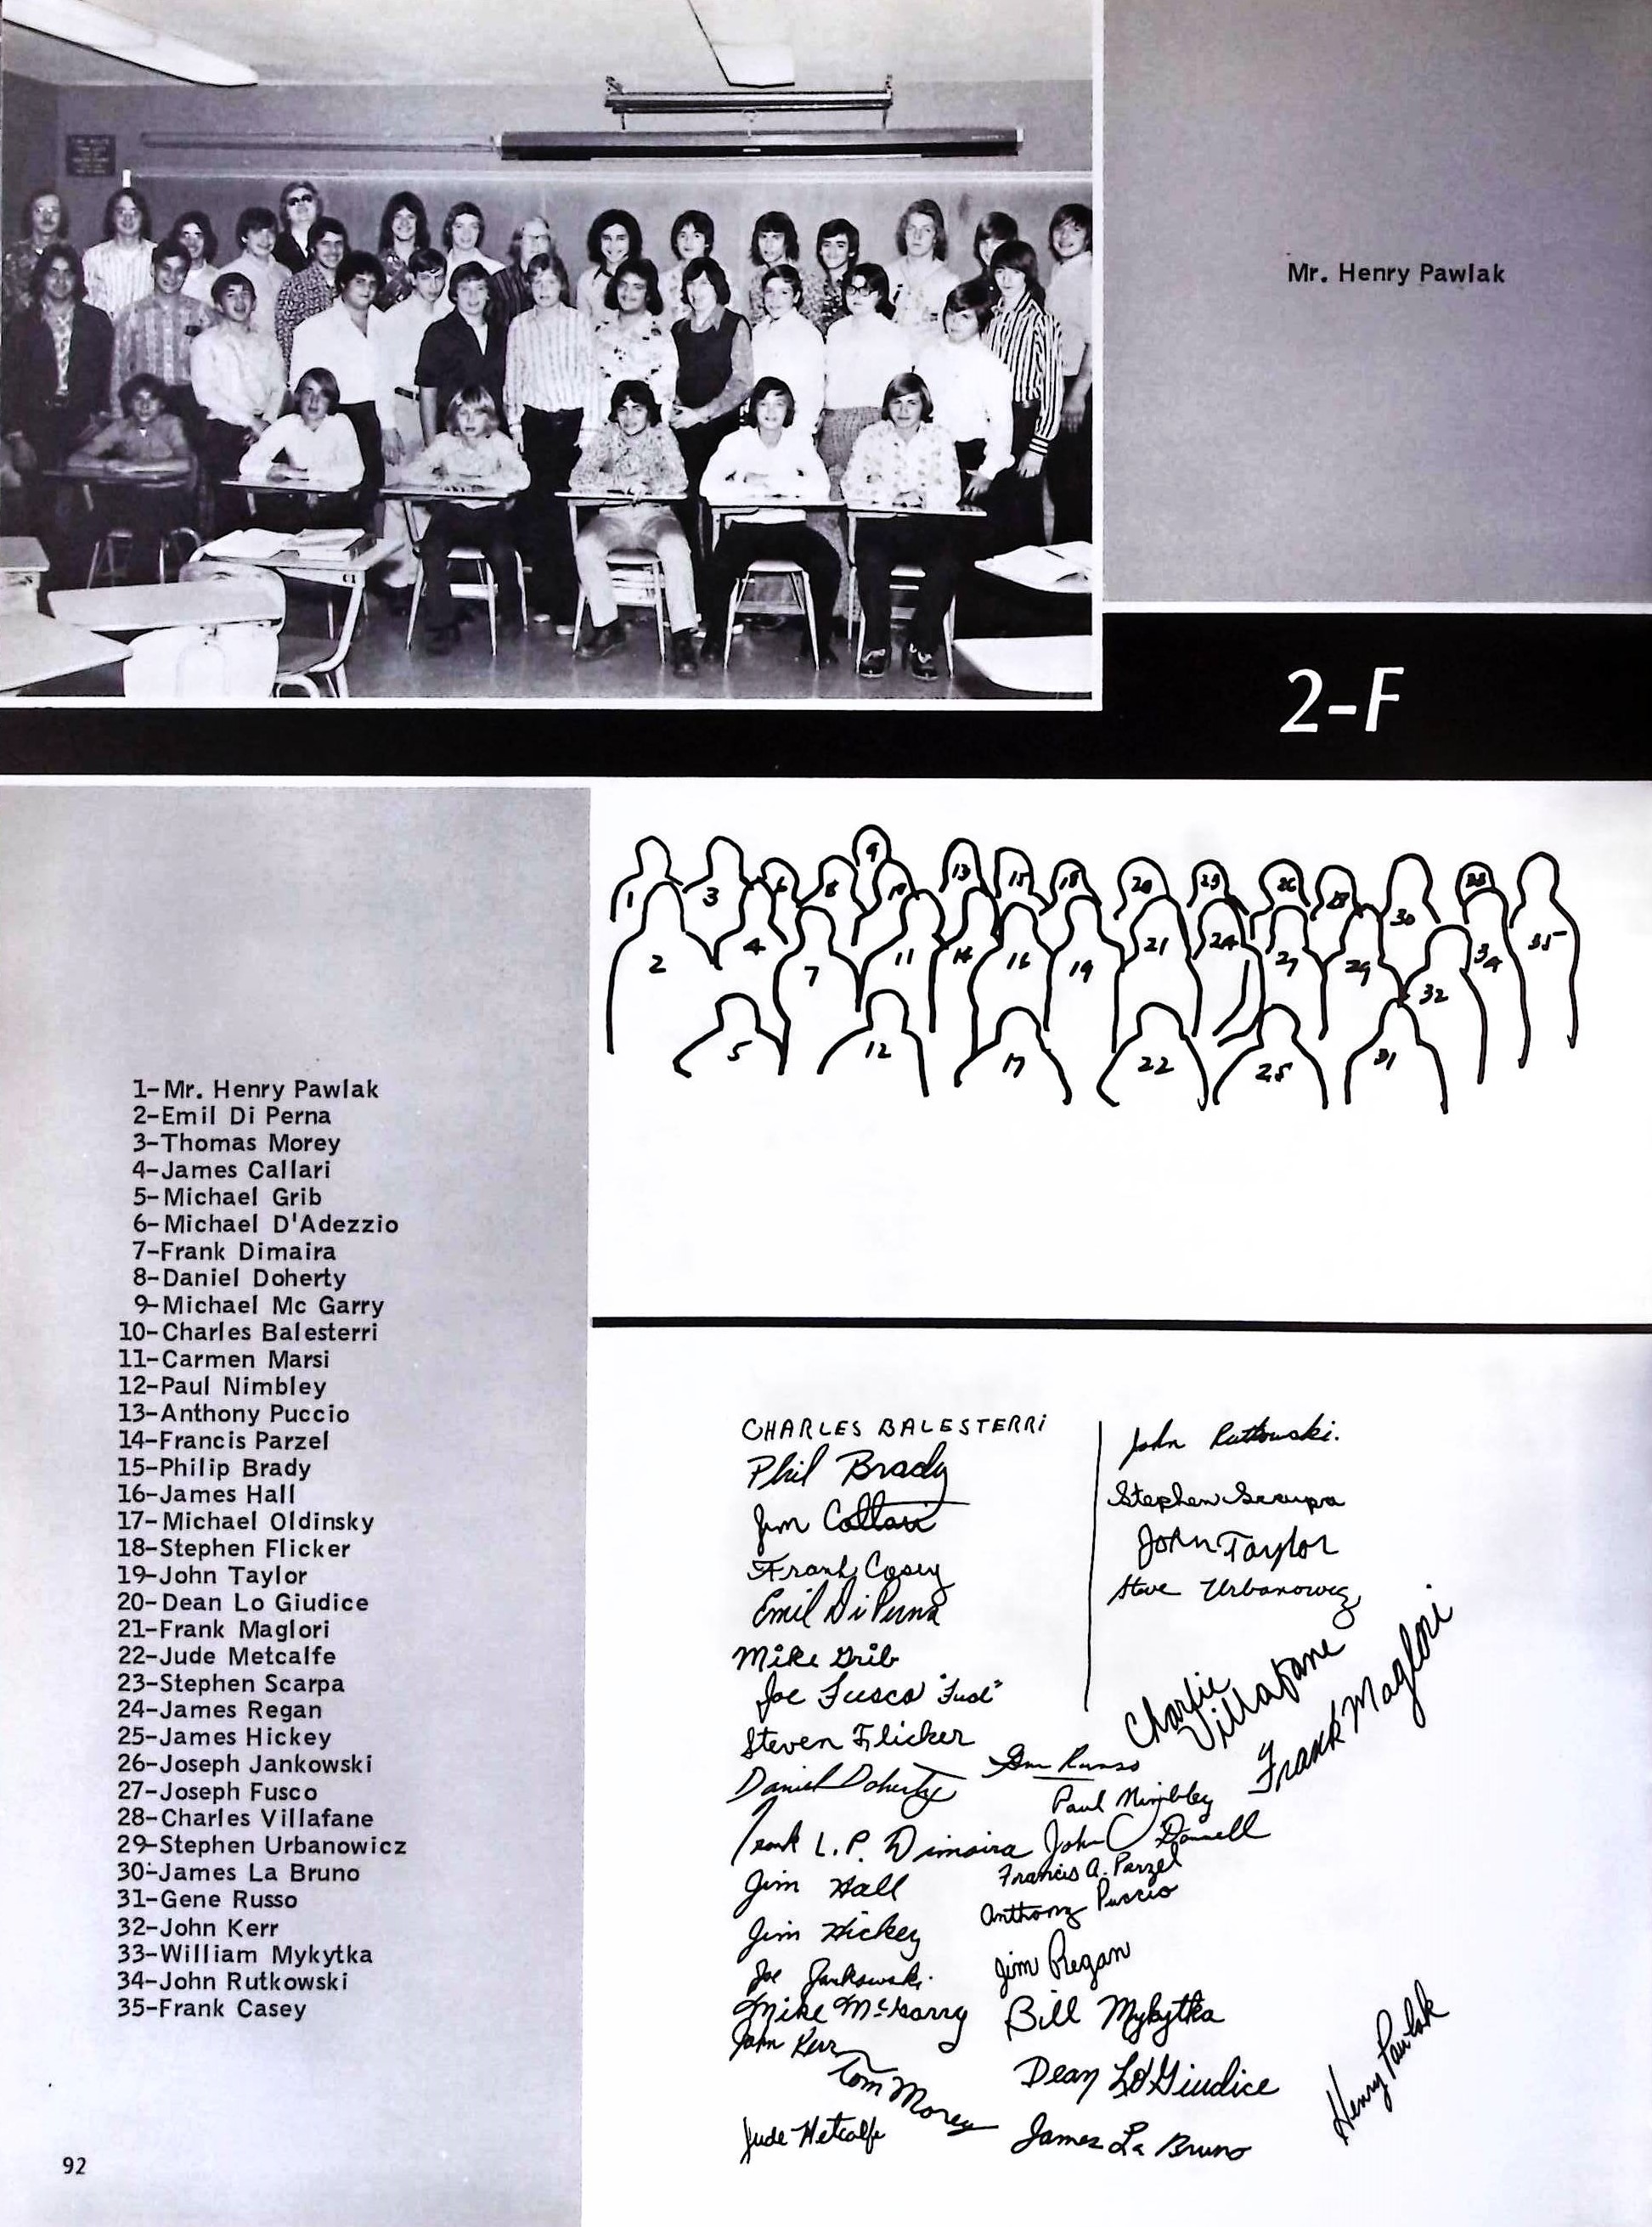 Mr. Henry Pawlak
2-F
1 3 6 8 9 10 13 15 18 20 23 26 28 30 33 35
2 4 7 11 14 16 19 21 24 27 29 32 34
5 12 17 22 25 31
1-Mr. Henry Pawlak
2-Emil Di Perna
3-Thomas Morey
4-James Callari
5-Michael Grib
6-Michael D'Adezzio
7-Frank Dimaira
8-Daniel Doherty
9-Michael Mc Garry
10-Charles Balesterri
11-Carmen Marsi
12-Paul Nimbley
13-Anthony Puccio
14-Francis Parzel
15-Philip Brady
16-James Hall
17-Michael Oldinsky
18-Stephen Flicker
19-John Taylor
20-Dean Lo Giudice
21-Frank Maglori
22-Jude Metcalfe
23-Stephen Scarpa
24-James Regan
25-James Hickey
26-Joseph Jankowski
27-Joseph Fusco
28-Charles Villafane
29-Stephen Urbanowicz
30-James La Bruno
31-Gene Russo
32-John Kerr
33-William Mykytka
34-John Rutkowski
35-Frank Casey
CHARLES BALESTERRi
Phil Brady
Jim Callari
Frank Casey
Emil Di Perna
Mike Grib
Joe Fusco
Steven Flicker
Daniel Doherty
Frank L.P. Dimaira
Jim Hall
Jim Hickey
Joe Jankowski
Mike McGarry
John Kerr
Tom Morey
Jude Metcalfe
John Rutkowski.
Stephen Scarpa
John Taylor
Steve Urbanowicz
Charlie Villafane
Frank Maglori
Gene Russo
Paul Nimbley
John
Francis A. Parzel
Anthony Puccio
Jim Regan
Bill Mykytka
Dean LoGiudice
James La Bruno
Henry Pawlak
92